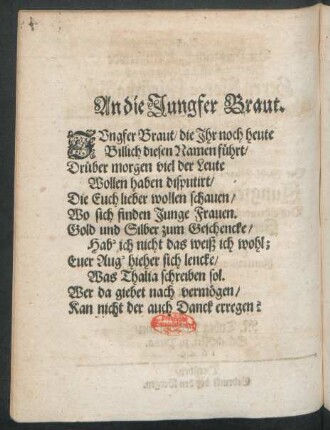 An die Jungfer Braut.
JUngfer Braut/ die Ihr noch heute
Billich diesen Namen führt/
Drüber morgen viel der Leute
Wollen haben disputirt/
Die Euch lieber wollen schauen/
Wo sich finden Junge Frauen.
Gold und Silber zum Geschencke/
Hab' ich nicht das weiß ich wohl;
Euer Aug' hieher sich lencke/
Was Thalia schreiben sol.
Wer da giebet nach vermögen/
Kan nicht der auch Danck erregen?